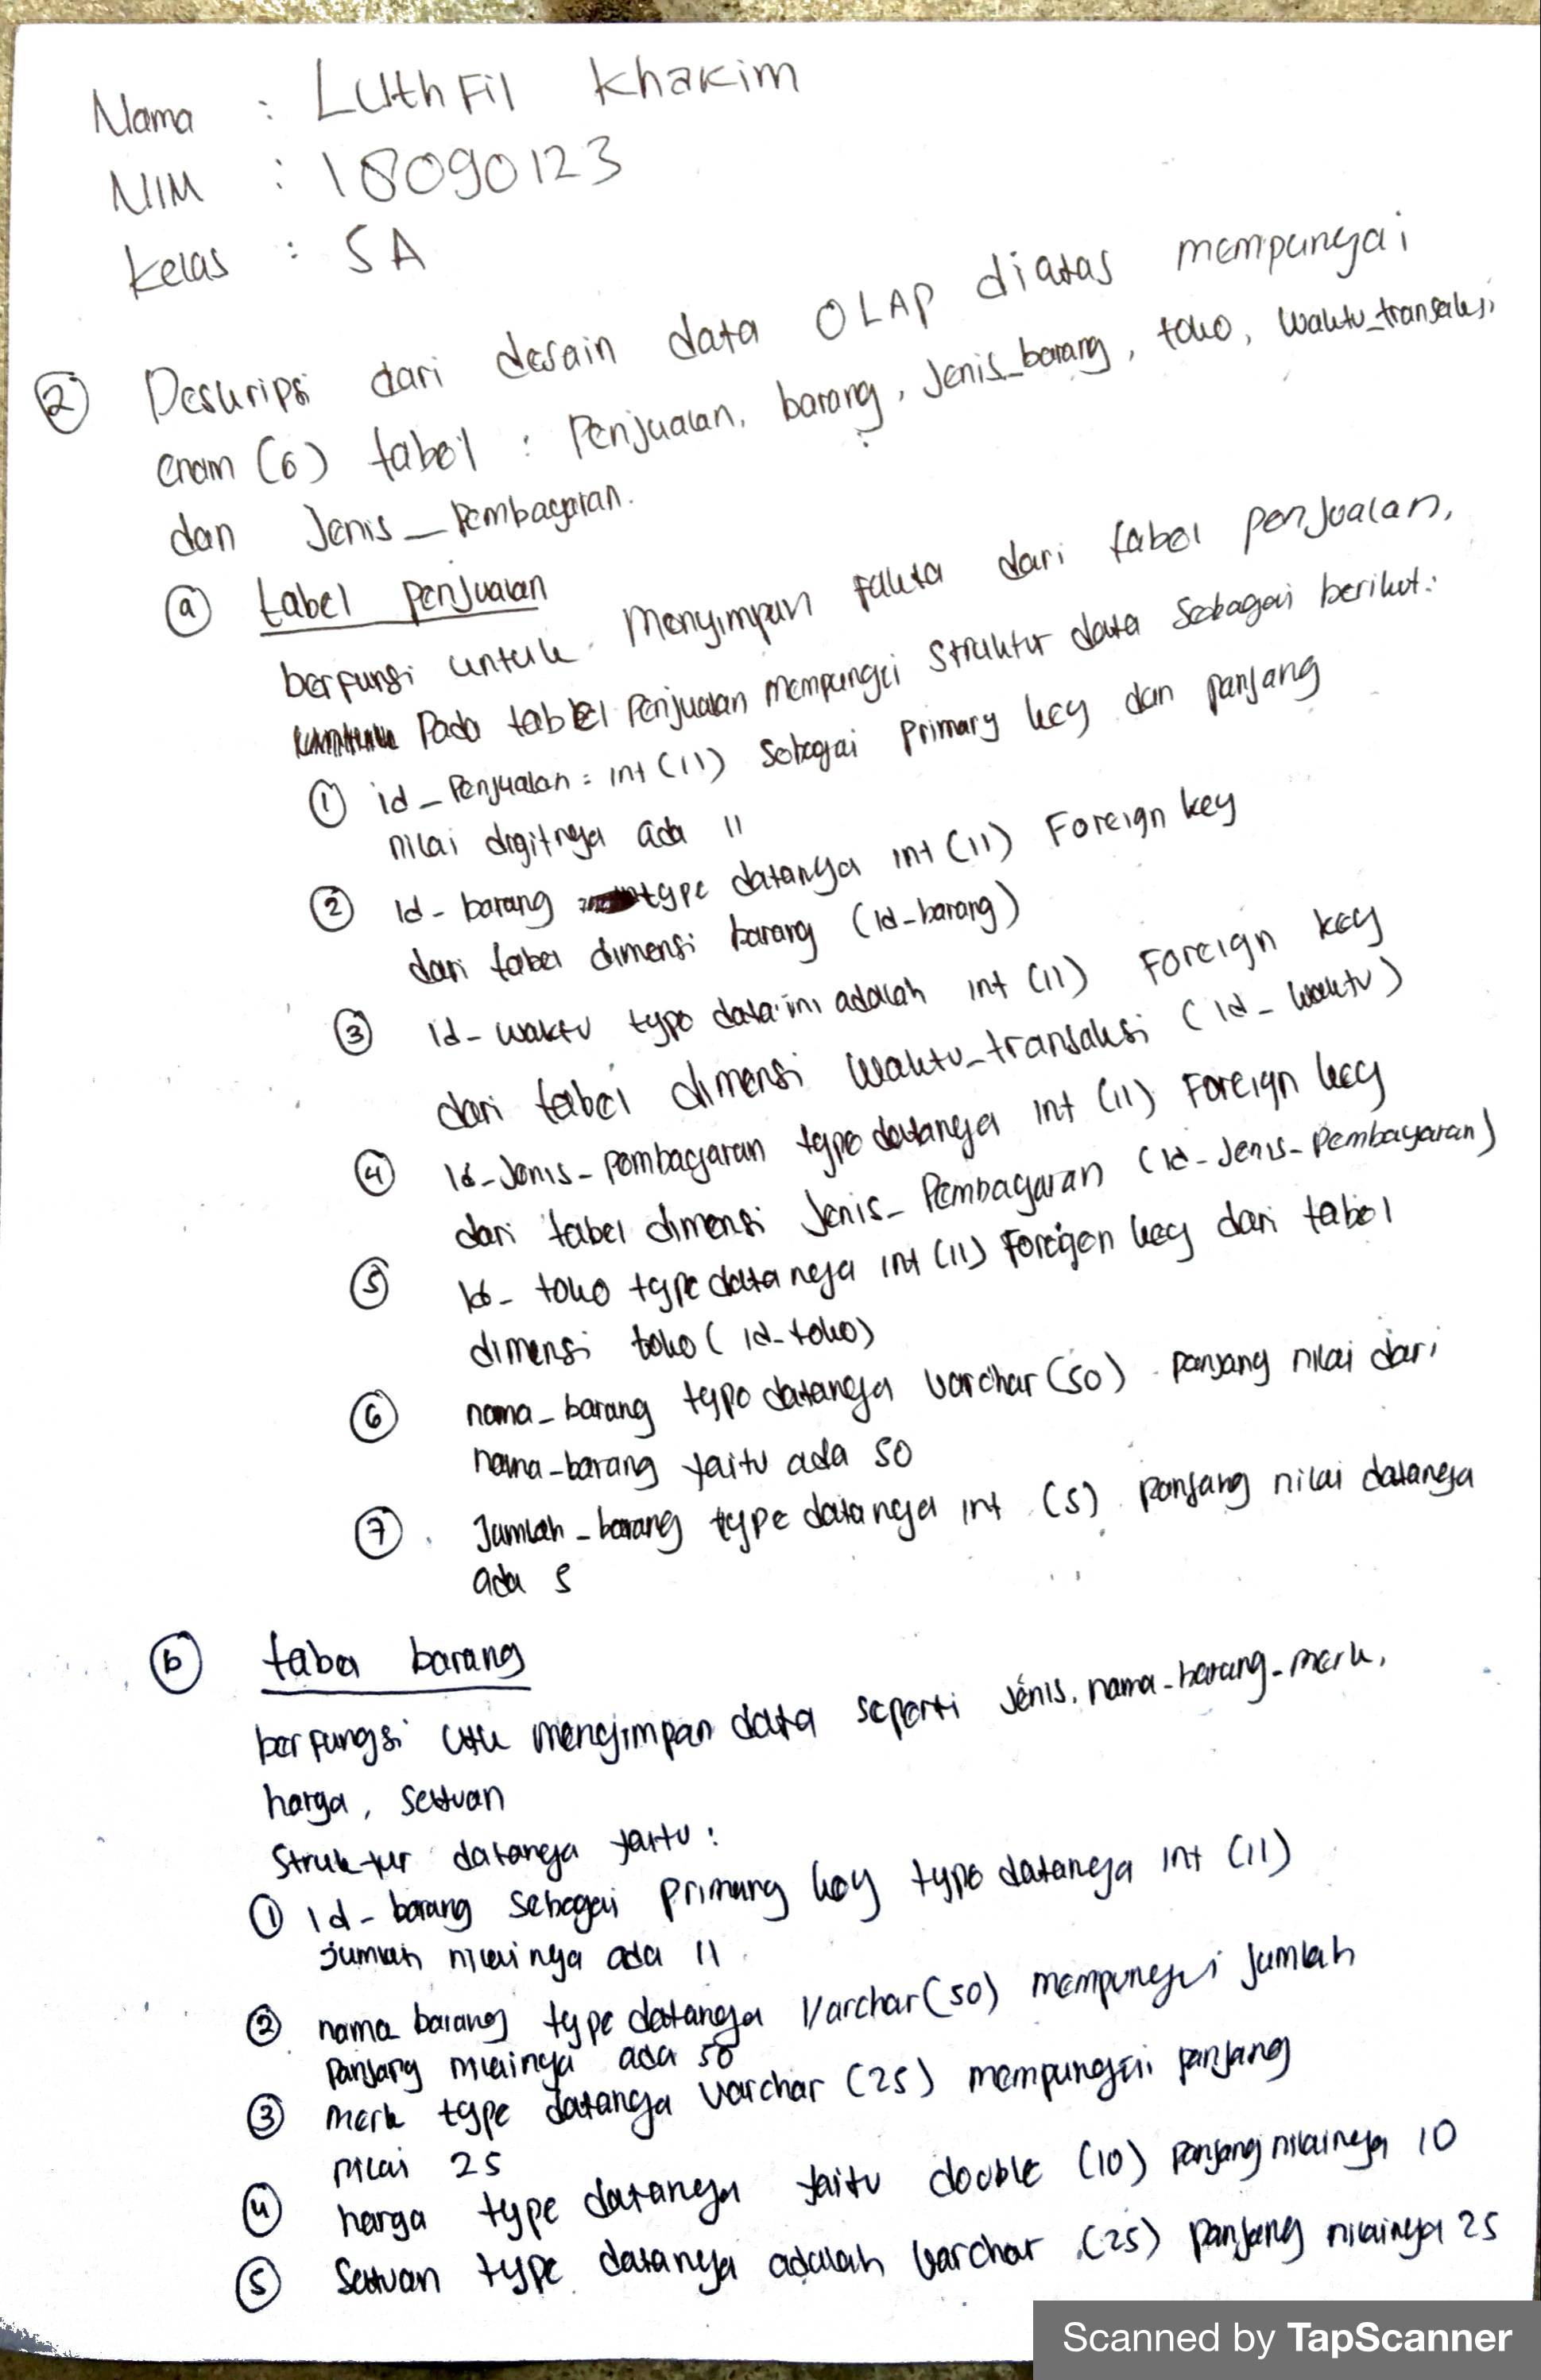 Nama : Luthfil Khakim
NIM : 18090123
Kelas : 5A
② Deskripsi dari desain data OLAP diatas mempunyai
enam (6) tabel : Penjualan, barang, Jenis_barang, toko, waktu_transaksi
dan Jenis_Pembayaran.
ⓐ tabel penjualan
berfungsi untuk menyimpan fakta dari tabel penjualan,
Pada tabel Penjualan mempunyai struktur data sebagai berikut:
① id_Penjualan = int (11) sebagai primary key dan panjang
nilai digitnya ada 11
② id-barang type datanya int (11) Foreign key
dari tabel dimensi barang (id-barang)
③ id-waktu type data ini adalah int (11) Foreign key
dari tabel dimensi waktu_transaksi (id-waktu)
④ id-Jenis-pembayaran type datanya int (11) Foreign key
dari tabel dimensi Jenis-Pembayaran (id-Jenis-Pembayaran)
⑤ id-toko type datanya int (11) Foreigen key dari tabel
dimensi toko (id-toko)
⑥ nama-barang type datanya varchar (50) panjang nilai dari
nama-barang yaitu ada 50
⑦ Jumlah-barang type datanya int (5) panjang nilai datanya
ada 5
ⓑ tabel barang
berfungsi utk menyimpan data seperti jenis, nama-barang-merk,
harga, satuan
Struktur datanya yaitu :
① id-barang sebagai primary key type datanya int (11)
jumlah nilainya ada 11
② nama barang type datanya Varchar (50) mempunyai jumlah
panjang nilainya ada 50
③ merk type datanya varchar (25) mempunyai panjang
nilai 25
④ harga type datanya yaitu double (10) panjang nilainya 10
⑤ Satuan type datanya adalah varchar (25) panjang nilainya 25
Scanned by TapScanner